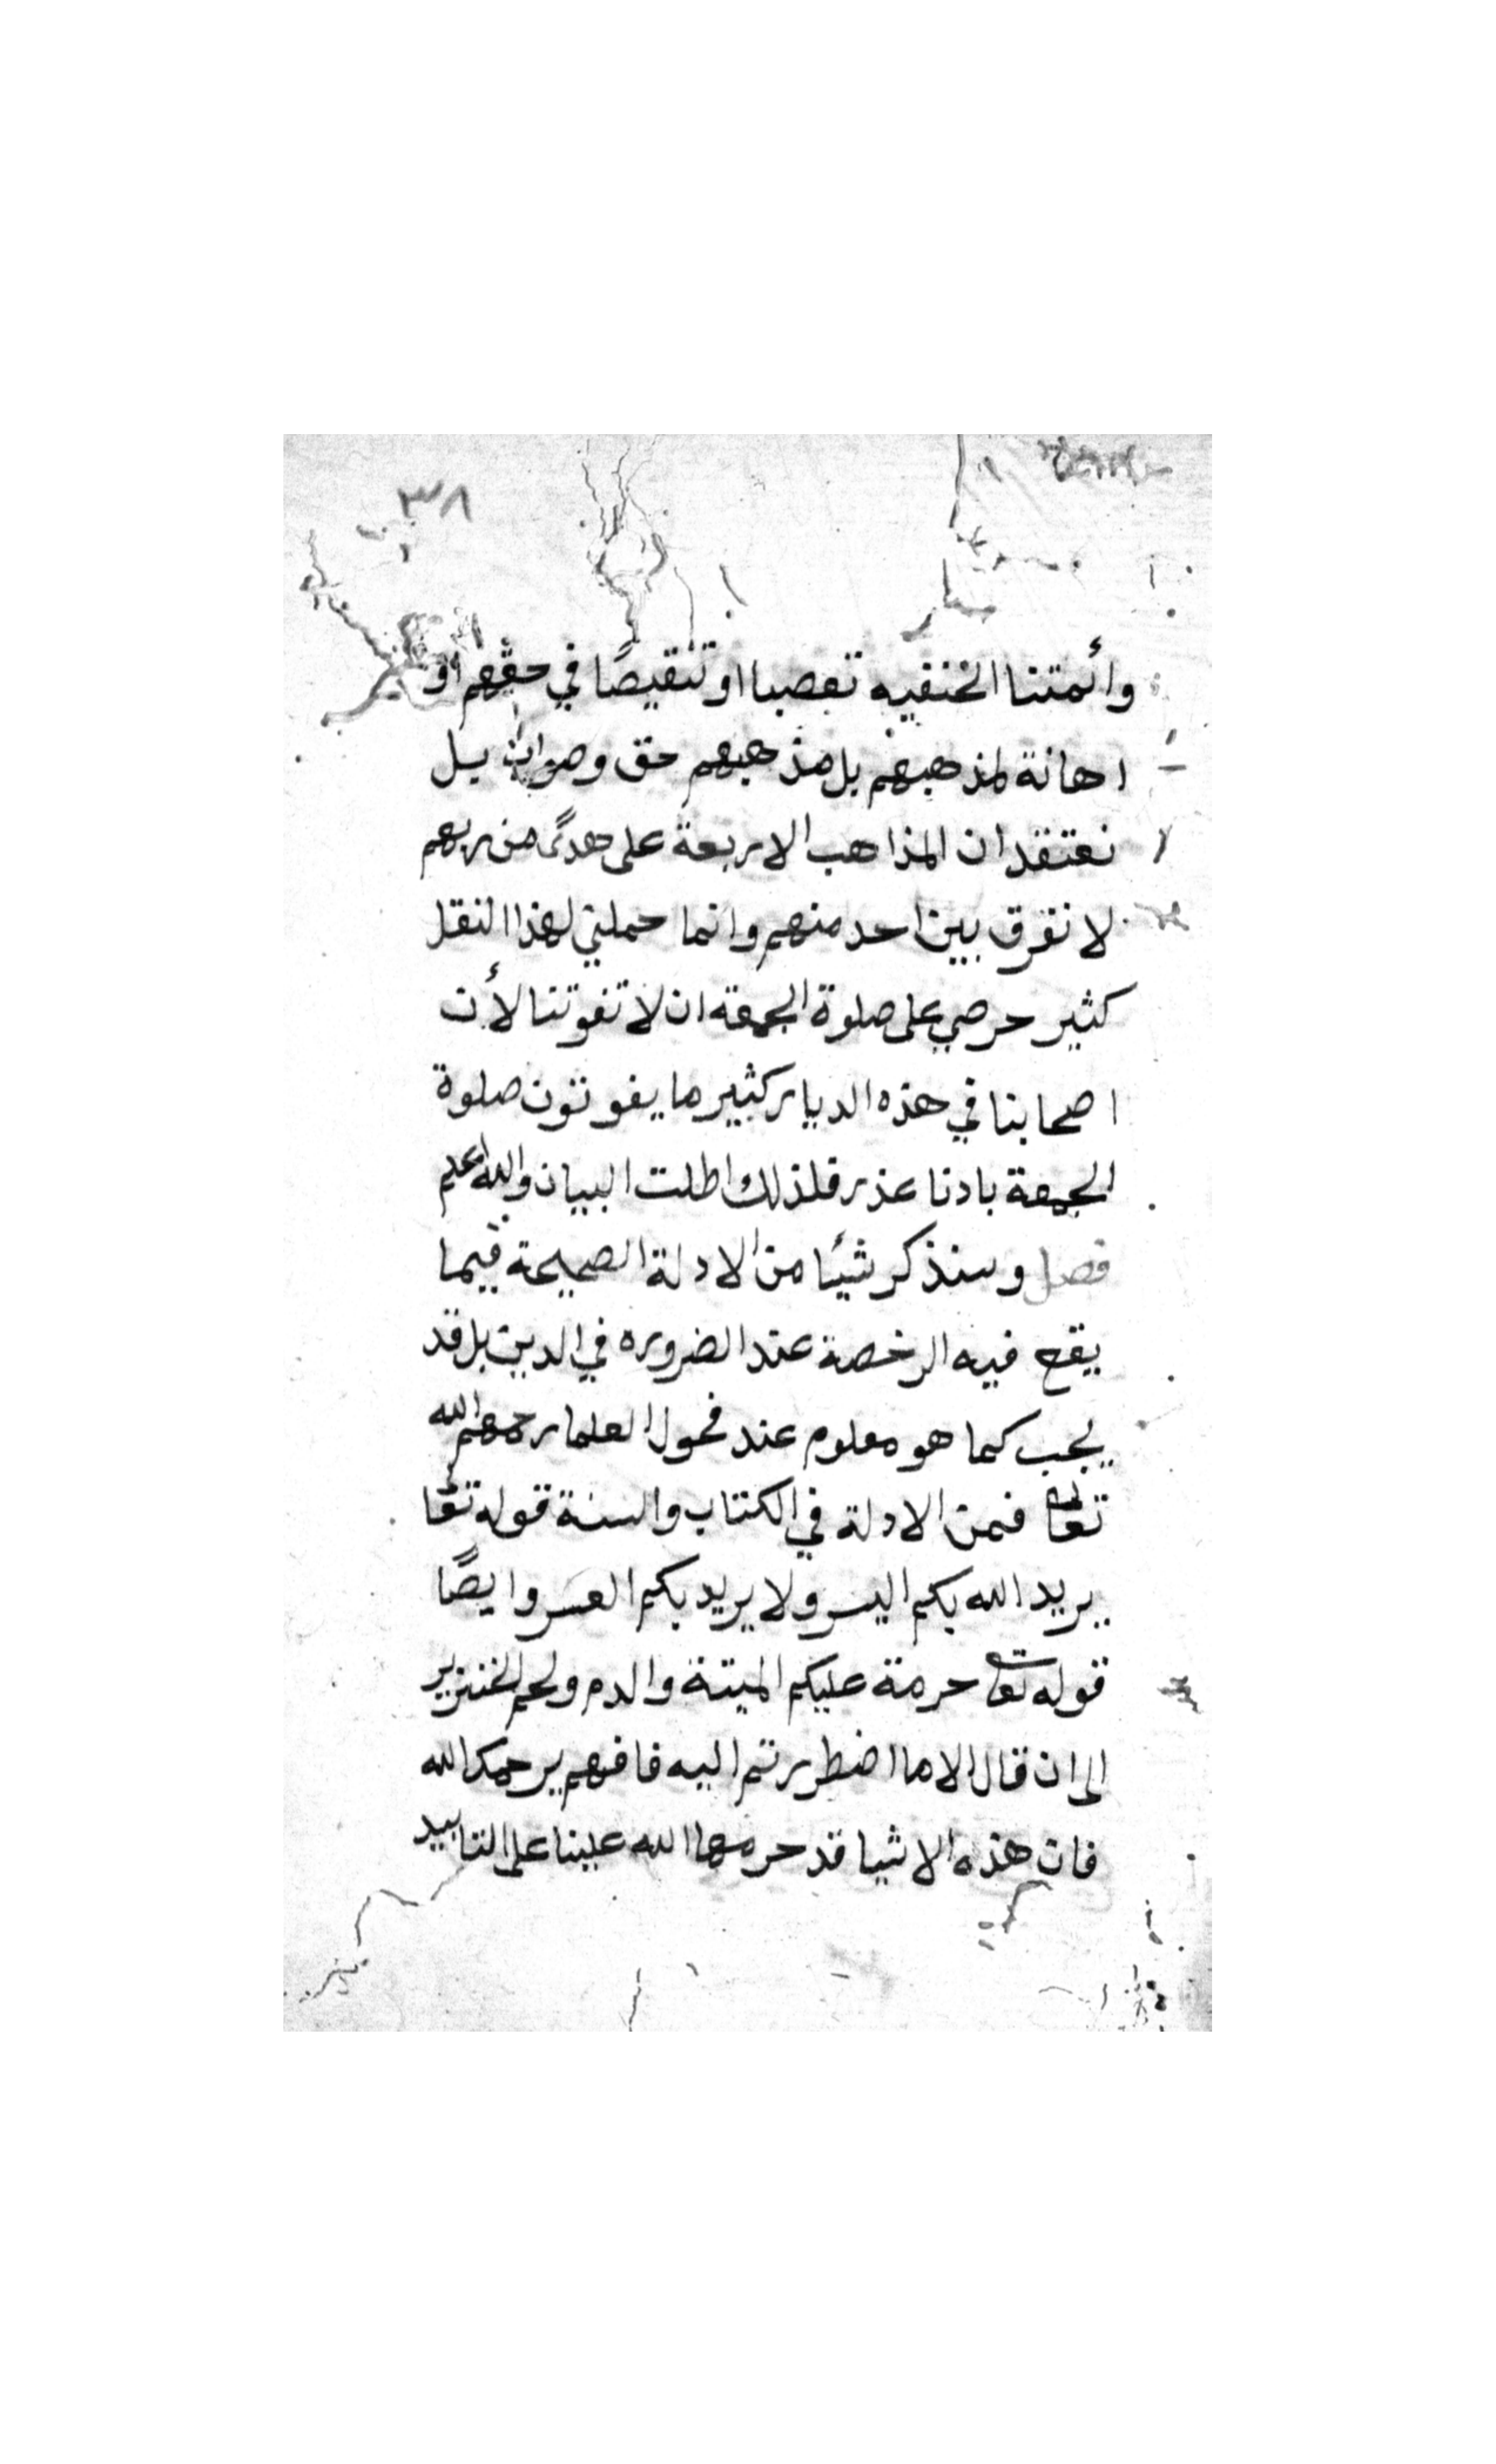 ٣٨
وائمتنا الحنفيه تعصبا او تنقيصًا في حقهم او
اهانة لمذهبهم بل مذهبهم حق وصواب بل
نعتقد ان المذاهب الاربعة على هدًى من ربهم
لا نفرق بين احد منهم وانما حملني لهذا النقل
كثير حرصي على صلوة الجمعة ان لا تفوتنا لأن
اصحابنا في هذه الديار كثير ما يفوتون صلوة
الجمعة بادنا عذر فلذلك اطلت البيان والله اعلم
فصل وسنذكر شيئا من الادلة الصحيحة فيما
يقع فيه الرخصة عند الضروره في الدين بل قد
يجب كما هو معلوم عند فحول العلما رحمهم الله
تعالى فمن الادلة في الكتاب والسنة قوله تعا
يريد الله بكم اليسر ولا يريد بكم العسر وايضًا
قوله تعالى حرمة عليكم الميتة والدم ولحم الخنزير
الى ان قال الا ما اضطررتم اليه فافهم يرحمك الله
فان هذه الاشيا قد حرمها الله علينا على التابيد